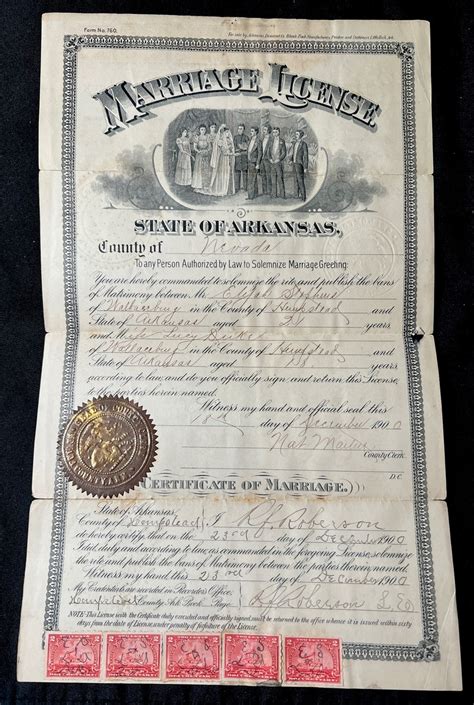 Form No. 760.
MARRIAGE LICENSE.
STATE OF ARKANSAS.
County of Nevada
To any Person Authorized by Law to Solemnize Marriage Greeting:
You are hereby commanded to solemnize the rite and publish the bans
of Matrimony between Mr. Elijah
of Wallaceburg in the County of Hempstead and
State of Arkansas aged 21 years
and Miss Lucy
of Wallaceburg in the County of Hempstead
State of Arkansas aged 18 years
according to law, and do you officially sign and return this License,
to the parties herein named.
Witness my hand and official seal this
18th day of December 1900
Nat Martin
County Clerk.
D.C.
CERTIFICATE OF MARRIAGE.
State of Arkansas,
County of Hempstead I R J Roberson
do hereby certify, that on the 23rd day of December 1900
I did, duly and according to law, as commanded in the foregoing License, solemnize
the rite and publish the bans of Matrimony between the parties therein named.
Witness my hand this 23rd day of December 1900
My Credentials are recorded in Recorders Office.
Hempstead County Ark. Book Page R J Roberson
NOTE: This License with the Certificate duly executed and officially signed must be returned to the office whence it is issued within sixty
days from the date of License under penalty of forfeiture of the License.